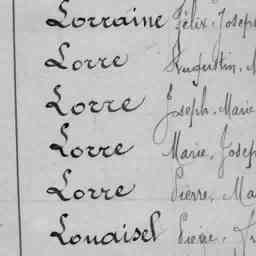 Lorraine Félix, Joseph
Lorre Augustin, M
Lorre Joseph, Marie
Lorre Marie, Josep
Lorre Pierre, Ma
Louaisel Pierre, Fr